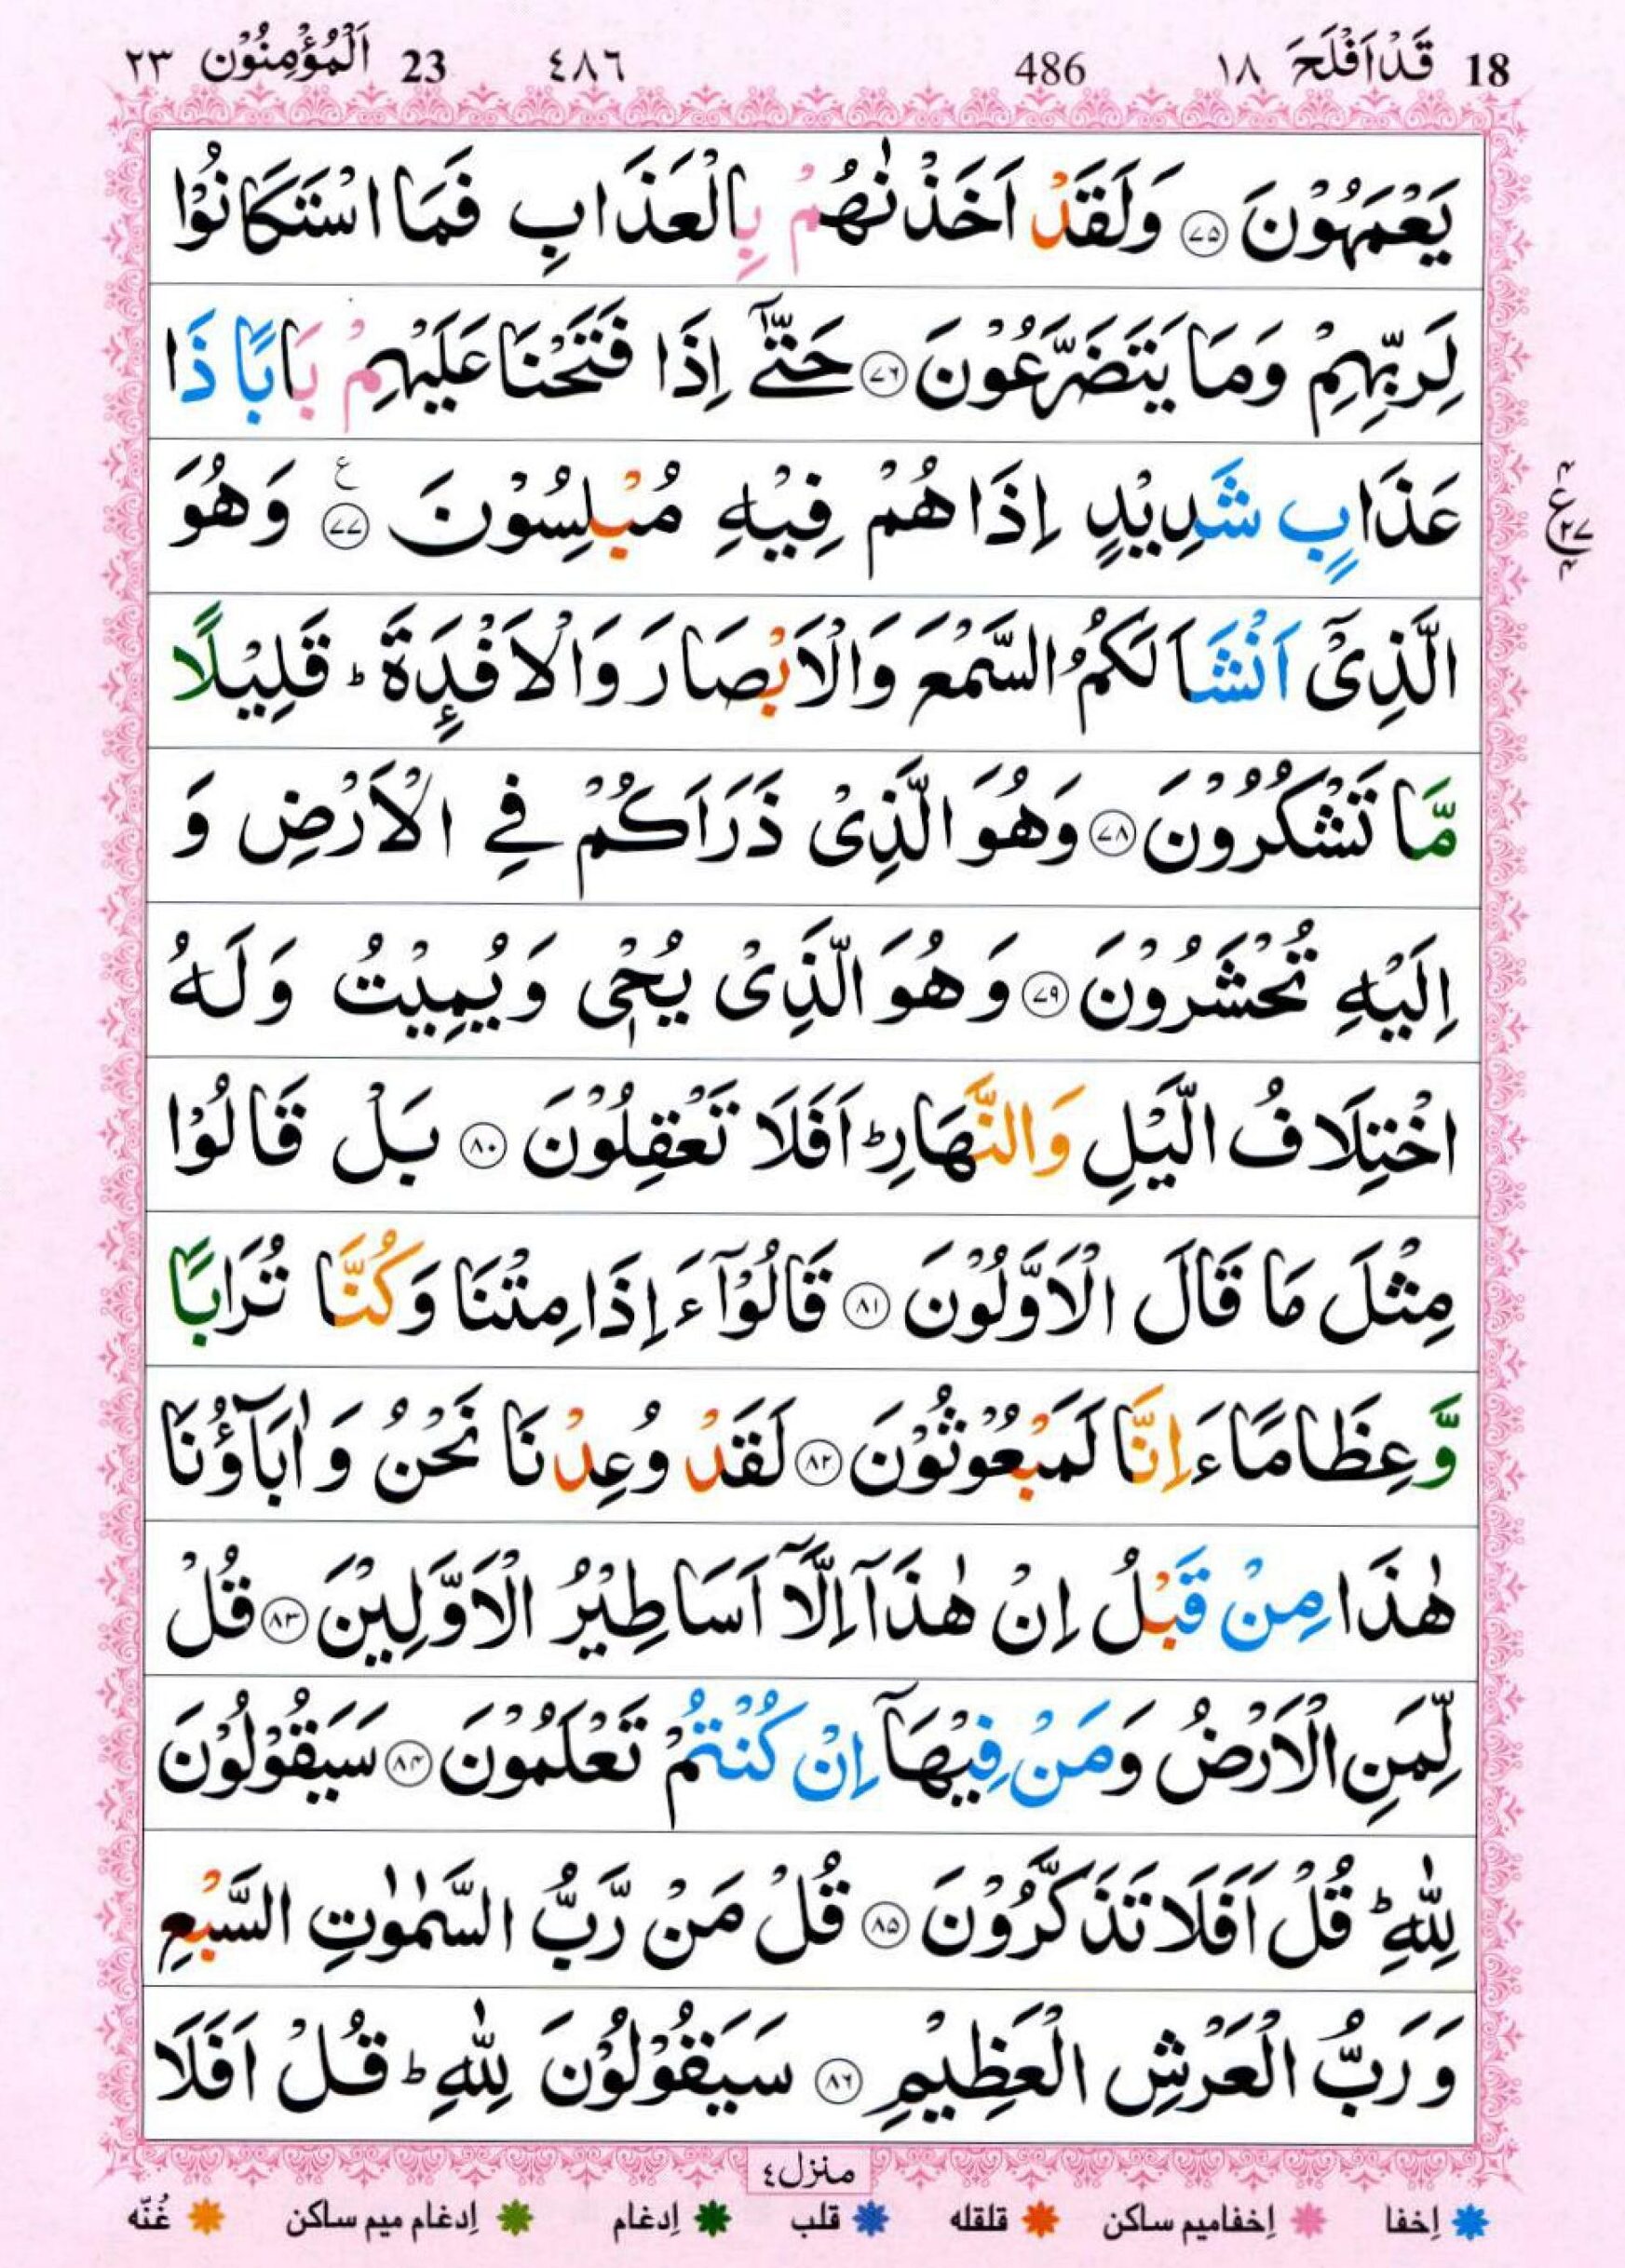 18 قَدْ اَفْلَحَ ١٨ 486 ٤٨٦ 23 اَلْمُؤْمِنُوْن ٢٣
يَعْمَهُوْنَ ﴿۷۵﴾ وَلَقَدْ اَخَذْنٰهُمْ بِالْعَذَابِ فَمَا اسْتَكَانُوْا
لِرَبِّهِمْ وَمَا يَتَضَرَّعُوْنَ ﴿۷۶﴾ حَتّٰۤى اِذَا فَتَحْنَا عَلَيْهِمْ بَابًا ذَا
عَذَابٍ شَدِيْدٍ اِذَا هُمْ فِيْهِ مُبْلِسُوْنَ ﴿۷۷﴾ ع وَهُوَ
الَّذِىْۤ اَنْشَاَ لَكُمُ السَّمْعَ وَالْاَبْصَارَ وَالْاَفْـِٕدَةَ ؕ قَلِيْلًا
مَّا تَشْكُرُوْنَ ﴿۷۸﴾ وَهُوَ الَّذِىْ ذَرَاَكُمْ فِى الْاَرْضِ وَ
اِلَيْهِ تُحْشَرُوْنَ ﴿۷۹﴾ وَهُوَ الَّذِىْ يُحْىٖ وَيُمِيْتُ وَلَهُ
اخْتِلَافُ الَّيْلِ وَالنَّهَارِ ؕ اَفَلَا تَعْقِلُوْنَ ﴿۸۰﴾ بَلْ قَالُوْا
مِثْلَ مَا قَالَ الْاَوَّلُوْنَ ﴿۸۱﴾ قَالُوْۤا ءَاِذَا مِتْنَا وَكُنَّا تُرَابًا
وَّعِظَامًا ءَاِنَّا لَمَبْعُوْثُوْنَ ﴿۸۲﴾ لَقَدْ وُعِدْنَا نَحْنُ وَاٰبَآؤُنَا
هٰذَا مِنْ قَبْلُ اِنْ هٰذَاۤ اِلَّاۤ اَسَاطِيْرُ الْاَوَّلِيْنَ ﴿۸۳﴾ قُلْ
لِّمَنِ الْاَرْضُ وَمَنْ فِيْهَاۤ اِنْ كُنْتُمْ تَعْلَمُوْنَ ﴿۸۴﴾ سَيَقُوْلُوْنَ
لِلّٰهِ ؕ قُلْ اَفَلَا تَذَكَّرُوْنَ ﴿۸۵﴾ قُلْ مَنْ رَّبُّ السَّمٰوٰتِ السَّبْعِ
وَرَبُّ الْعَرْشِ الْعَظِيْمِ ﴿۸۶﴾ سَيَقُوْلُوْنَ لِلّٰهِ ؕ قُلْ اَفَلَا
منزل ٤
اِخفا اِخفامیم ساکن قلقله قلب اِدغام اِدغام میم ساکن غُنّه